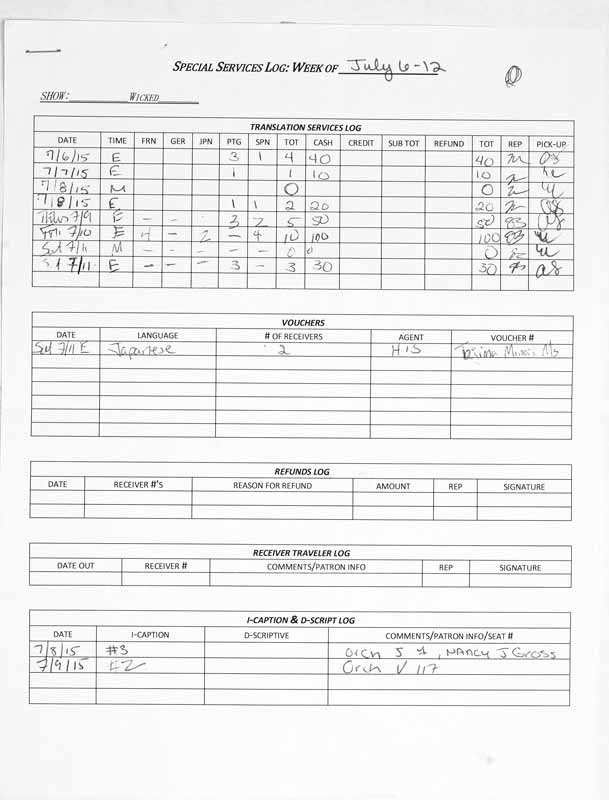 SPECIAL SERVICES LOG: WEEK OF July 6-12
SHOW: WICKED
TRANSLATION SERVICES LOG
DATE TIME FRN GER JPN PTG SPN TOT CASH CREDIT SUB TOT REFUND TOT REP PICK-UP
7/6/15 E 3 1 4 40 40
7/7/15 E 1 1 10 10
7/8/15 M 0 0
7/8/15 E 1 1 2 20 20
Thurs 7/9 E - - 3 2 5 50 50 83
Fri 7/10 E 4 - 2 - 4 10 100 100 83
Sat 7/11 M - - - - - 0 0 0
Sat 7/11 E - - - 3 - 3 30 30
VOUCHERS
DATE LANGUAGE # OF RECEIVERS AGENT VOUCHER #
Sat 7/11 E Japanese 2 HIS
REFUNDS LOG
DATE RECEIVER #'S REASON FOR REFUND AMOUNT REP SIGNATURE
RECEIVER TRAVELER LOG
DATE OUT RECEIVER # COMMENTS/PATRON INFO REP SIGNATURE
I-CAPTION & D-SCRIPT LOG
DATE I-CAPTION D-SCRIPTIVE COMMENTS/PATRON INFO/SEAT #
7/8/15 #3 Orch J 1, NANCY J Gross
7/9/15 #2 Orch V 117